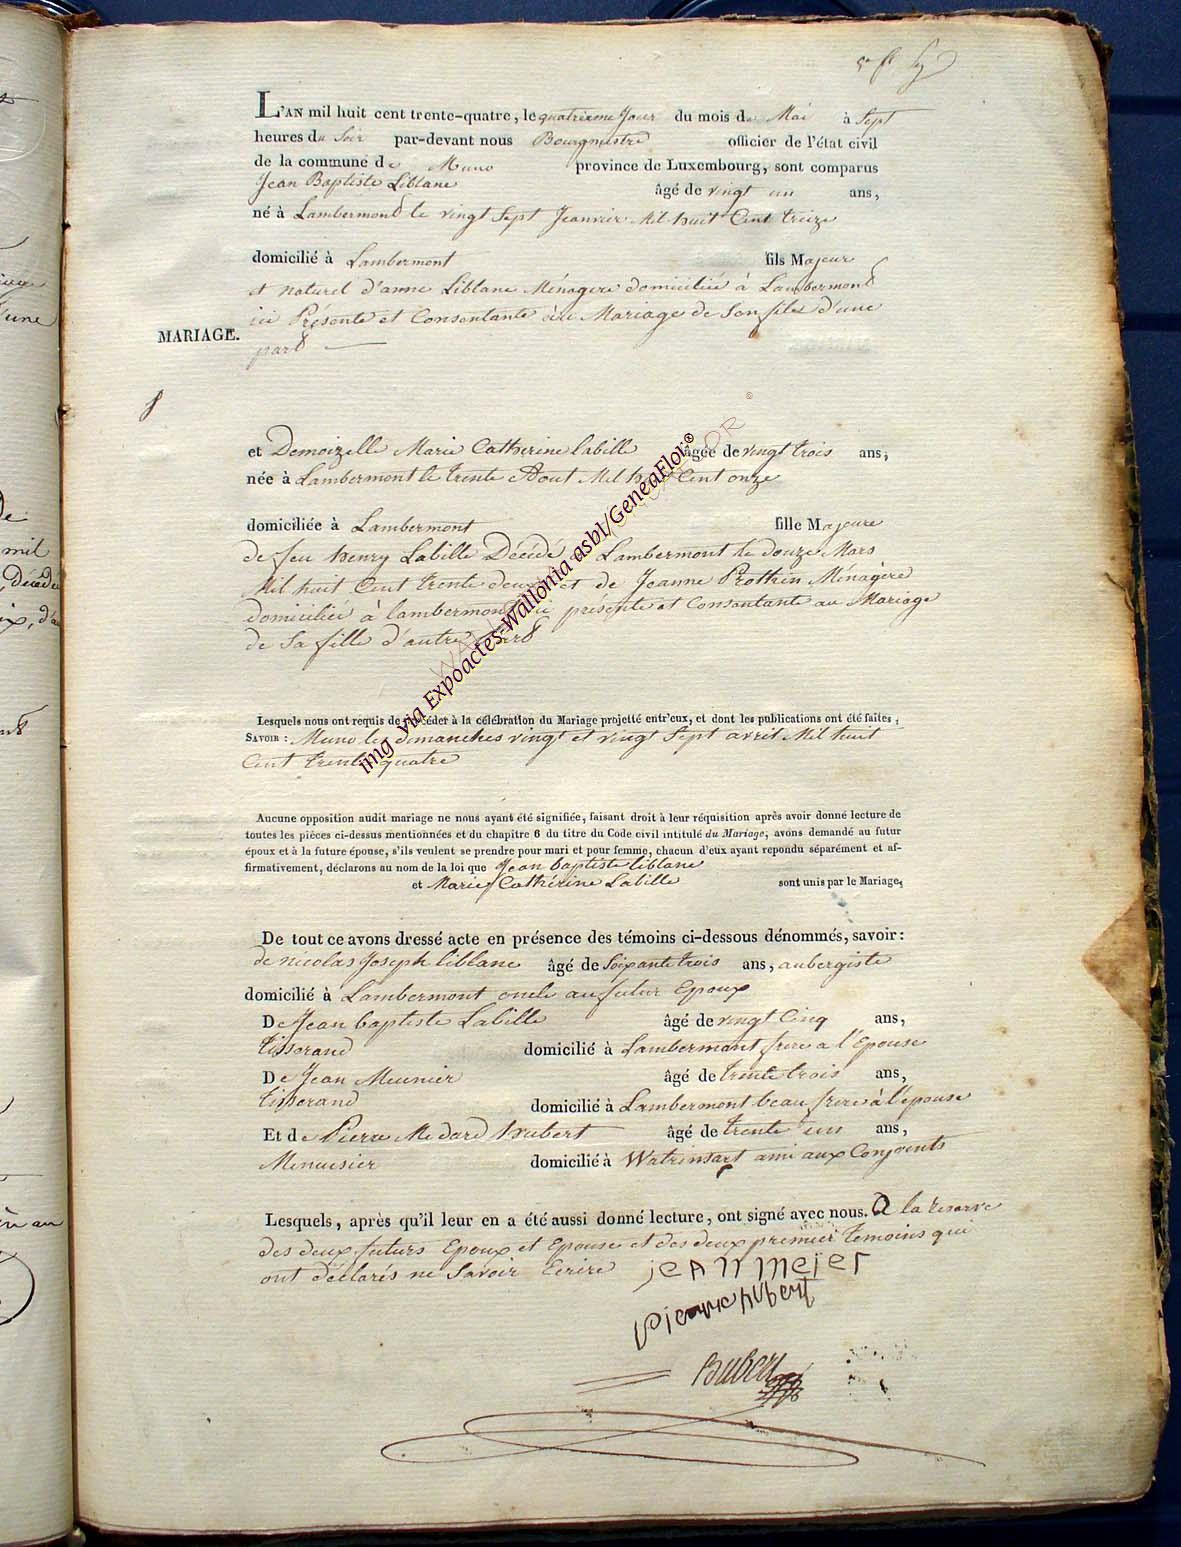 L'AN mil huit cent trente-quatre, le quatrieme Jour du mois de Mai à Sept
heures du Soir par-devant nous Bourgmestre officier de l'état civil
de la commune de Muno province de Luxembourg, sont comparus
Jean Baptiste Liblanc âgé de vingt un ans,
né à Lambermont le vingt Sept Jeanvier Mil huit Cent treize
domicilié à Lambermont fils Majeur
et naturel d'anne Liblanc Ménagere domiciliée à Lambermont
ici Présente et Consentante au Mariage de Son fils d'une
MARIAGE.
part
8
et Demoizelle Marie Catherine Labille âgée de vingt trois ans,
née à Lambermont le trente Aout Mil huit Cent onze
domiciliée à Lambermont fille Majeure
de feu henry Labille Décédé à Lambermont le douze Mars
Mil huit Cent trente deux et de Jeanne Prothin Ménagère
domiciliée à lambermont ici présente et Consentante au Mariage
de Sa fille d'autre part
Lesquels nous ont requis de procéder à la célébration du Mariage projetté entr'eux, et dont les publications ont été faites,
SAVOIR : Muno les dimanches vingt et vingt Sept avril Mil huit
Cent trente quatre
Aucune opposition audit mariage ne nous ayant été signifiée, faisant droit à leur réquisition après avoir donné lecture de
toutes les pièces ci-dessus mentionnées et du chapitre 6 du titre du Code civil intitulé du Mariage, avons demandé au futur
époux et à la future épouse, s'ils veulent se prendre pour mari et pour femme, chacun d'eux ayant repondu séparément et af-
firmativement, déclarons au nom de la loi que Jean baptiste liblanc
et Marie Cathérine Labille sont unis par le Mariage,
De tout ce avons dressé acte en présence des témoins ci-dessous dénommés, savoir :
de nicolas Joseph liblanc âgé de Soixante trois ans, aubergiste
domicilié à Lambermont oncle au futur Epoux
De Jean baptiste Labille âgé de vingt Cinq ans,
tisserand domicilié à Lambermont frere a l'Epouse
De Jean Meunier âgé de trente trois ans,
tisserand domicilié à Lambermont beau frere à l'épouse
Et de Pierre Medard hubert âgé de trente un ans,
Menuisier domicilié à Watrinsart ami aux Conjoints
Lesquels, après qu'il leur en a été aussi donné lecture, ont signé avec nous. A la reserve
des deux futurs Epoux et Epouse et des deux premier temoins qui
ont déclarés ne Savoir Ecrire jeAn meier
pierre hubert
img via Expoactes-Wallonia asbl/GeneaFlor®